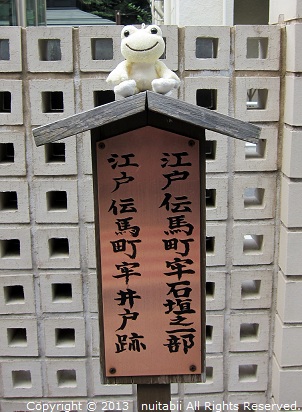 江戸伝馬町牢石垣之一部
江戸伝馬町牢井戸跡
Copyright © 2013 nuitabii All Rights Reserved.